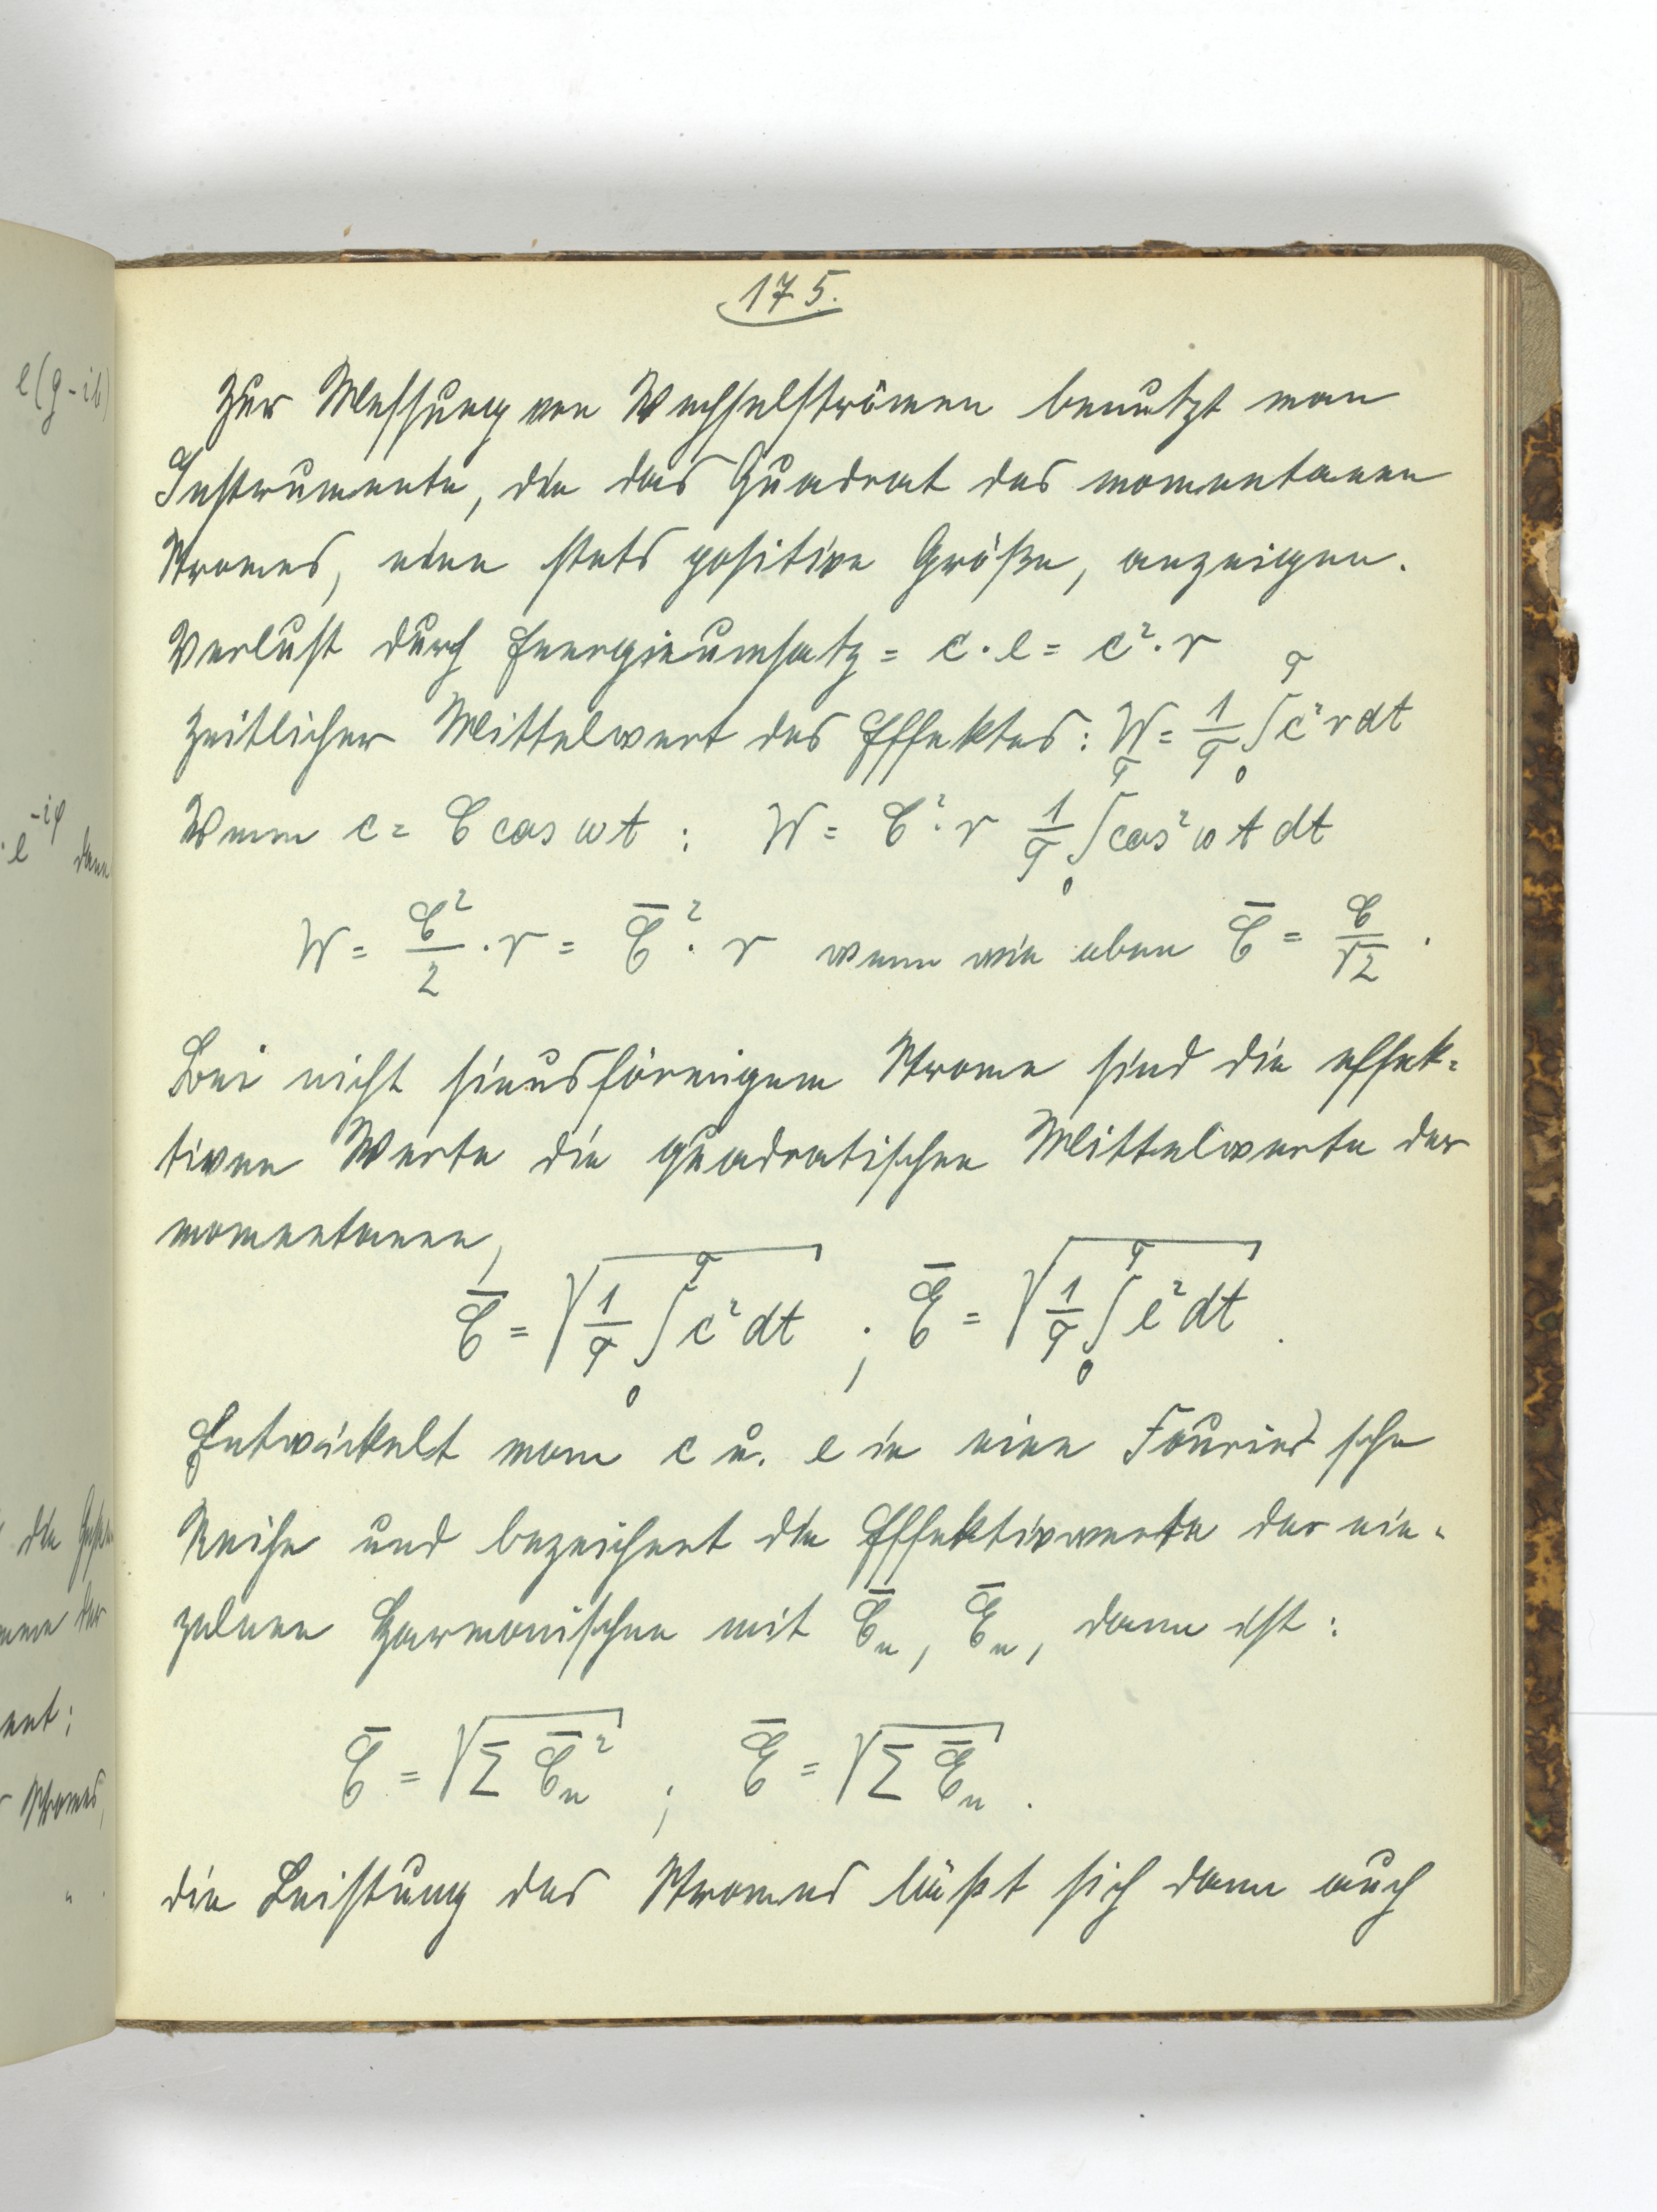 175.
e(g-ib)
Zur Messung von Wechselströmen benutzt man
Instrumente, die das Quadrat des momentanen
Stromes, eine stets positive Größe, anzeigen.
Verlust durch Energieumsatz = c · e = c² · r
Zeitlicher Mittelwert des Effektes: W = 1/T ∫₀ᵀ c² r dt
Wenn c = C cos ωt : W = C² · r 1/T ∫₀ᵀ cos² ω t dt
·e^-iφ dann
W = C²/2 · r = C̄² · r wenn wie oben C̄ = C/√2 .
Bei nicht sinusförmigem Strome sind die effek=
tiven Werte die quadratischen Mittelwerte der
momentanen,
C̄ = √(1/T ∫₀ᵀ c² dt) ; Ē = √(1/T ∫₀ᵀ e² dt) .
Entwickelt man c u. e in eine Fourier'sche
Reihe und bezeichnet die Effektivwerte der ein=
die
zelnen Harmonischen mit C̄n, Ēn, dann ist:
der
ent;
C̄ = √(Σ C̄n²) ; Ē = √(Σ Ēn) .
Stromes,
die Leistung des Stromes läßt sich dann auch